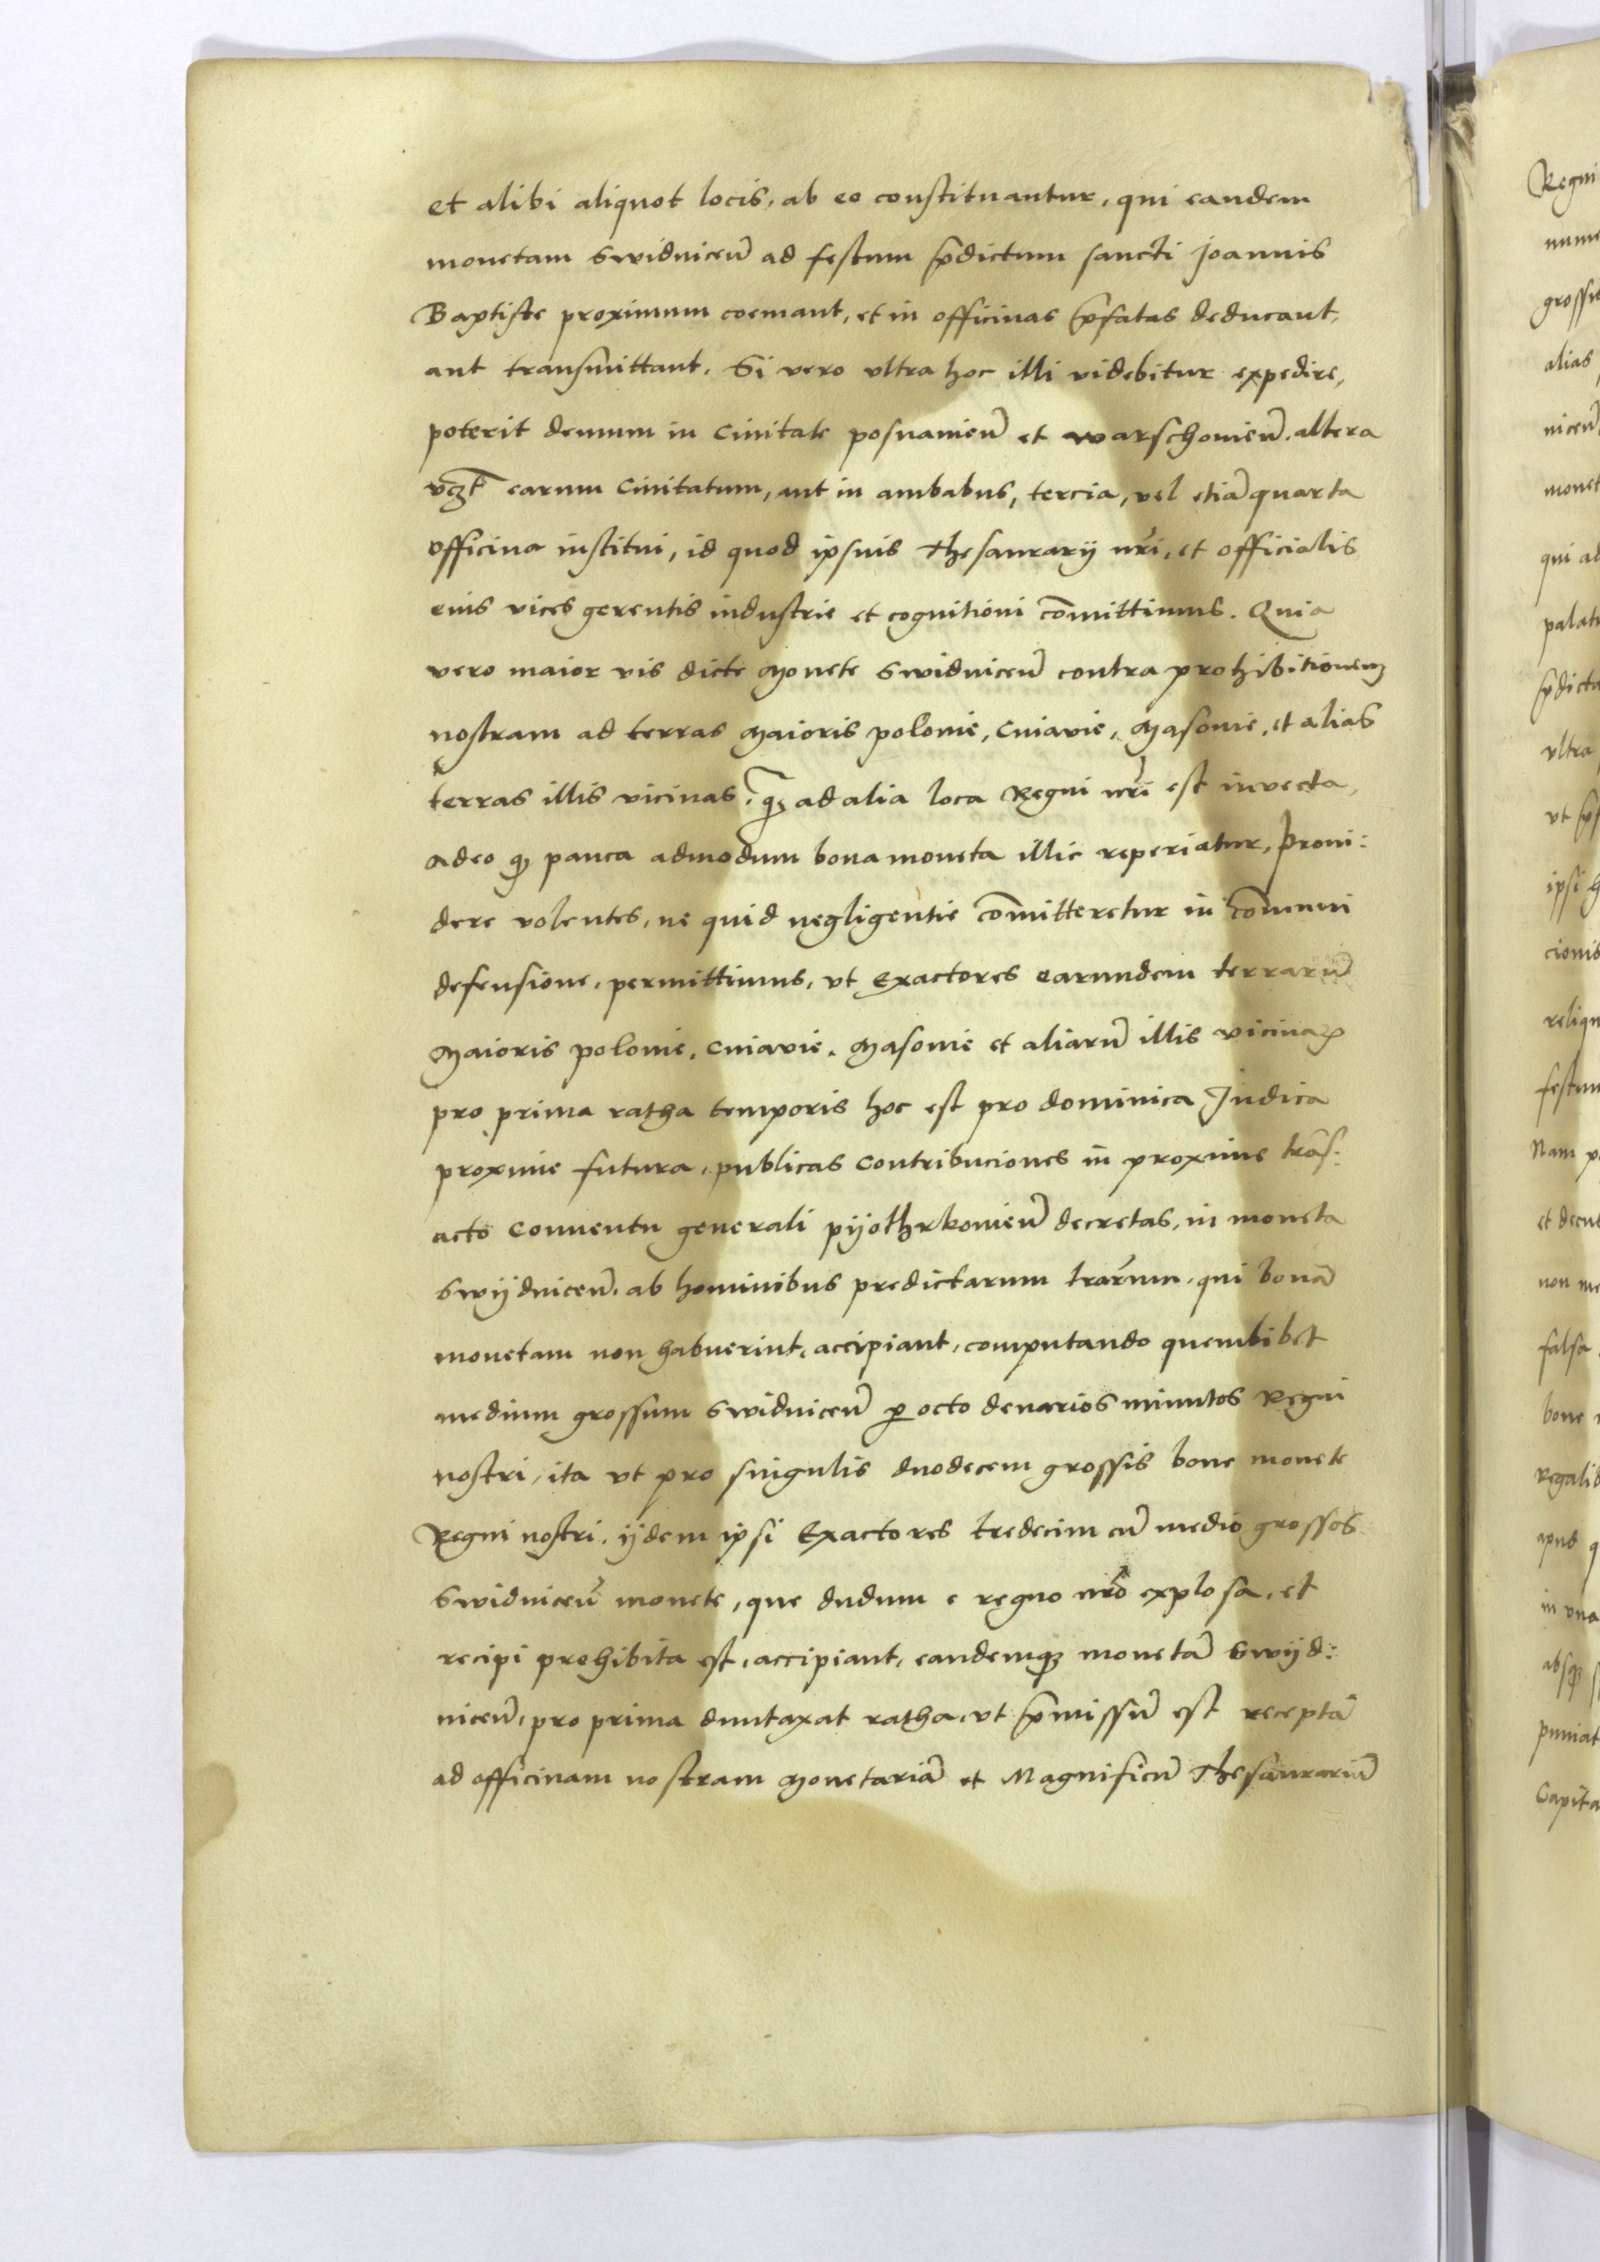 et alibi aliquot locis, ab eo constituantur, qui eandem
monetam Swidniceñ ad festum p̃dictum sancti Joannis
Baptiste proximum coemant, et in officinas p̃fatas deducant,
aut transmittant. Si vero ultra hoc illi videbitur expedire,
poterit demum in Civitate posnanieñ et warschovieñ. altera
vꝫt earum Civitatum, aut in ambabus, tercia, vel etiã quarta
officina institui, id quod ipsius Thesaurarij nr̃i, et officialis
eius vices gerentis industrie et cognitioni cõmittimus. Quia
vero maior vis dicte Monete Swidniceñ contra prohibitionem
nostram ad terras Maioris polonie, Cuiavie, Masovie, et alias
terras illis vicinas, q̃ ad alia loca Regni nr̃i est invecta,
adeo qꝫ pauca admodum bona moneta illic reperiatur, Provi:
dere volentes, ne quid negligentie cõmitteretur in cõmuni
defensione, permittimus, vt Exactores earundem terrarũ
Maioris polonie, Cuiavie, Masovie et aliarũ illis vicinaꝝ
pro prima ratha temporis hoc est pro dominica Judica
proxime futura, publicas Contribuciones in proxime trãs:
acto Conventu generali pyothrkovieñ decretas, in moneta
Swijdniceñ, ab hominibus predictarum trãrum, qui bonã
monetam non habuerint, accipiant, computando quemlibet
medium grossum Swidniceñ ꝑ octo denarios minutos Regni
nostri, ita vt pro singulis duodecem grossis bone monete
Regni nostri, ijdem ipsi Exactores tredecim cũ medio grossos
Swidniceñ monete, que dudum e regno nr̃o explosa, et
recipi prohibita est, accipiant, eandemqꝫ monetã Swijd:
niceñ, pro prima duntaxat ratha, vt p̃missũ est receptã
ad officinam nostram Monetariã et Magnificũ Thesaurariũ